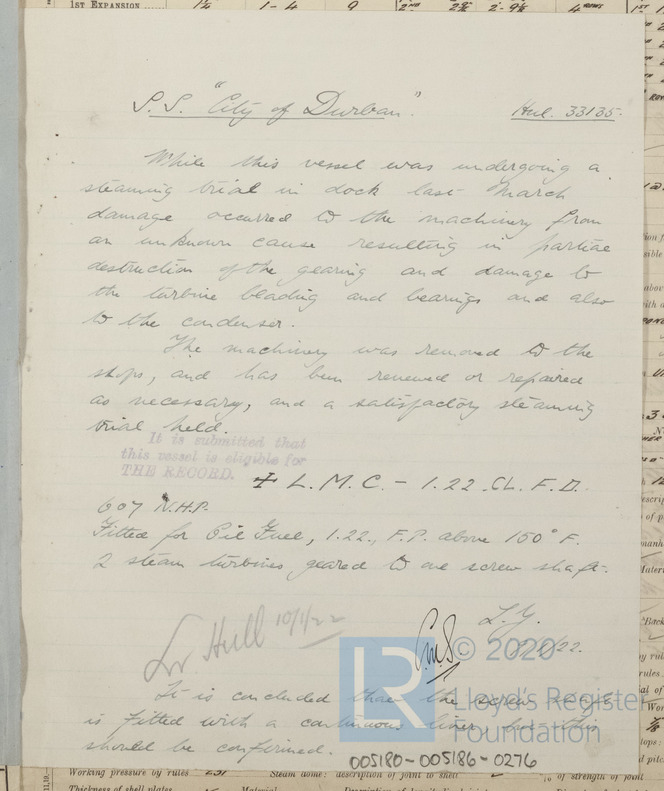 1ST EXPANSION ...... 1½ 1-4 9 2ND 2⅞ 2-9⅝ 4 ROWS
S.S. "City of Durban". Hul. 33135.
While this vessel was undergoing a
steaming trial in dock last March
damage occurred to the machinery from
an unknown cause resulting in partial
destruction of the gearing and damage to
the turbine blading and bearings and also
to the condenser.
The machinery was removed to the
shops, and has been renewed or repaired
as necessary, and a satisfactory steaming
trial held.
It is submitted that
this vessel is eligible for
THE RECORD. + L.M.C. - 1.22. CL. F.D.
607 N.H.P.
Fitted for Oil Fuel, 1.22., F.P. above 150° F.
2 steam turbines, geared to one screw shaft.
Lr Hull 10/1/22
L.Y.
/1/22.
© 2020
LR
Lloyd's Register
Foundation
It is concluded that the screw shaft
is fitted with a continuous liner but this
should be confirmed.
005180-005186-0276
Working pressure by rules 231 Steam dome: description of joint to shell % of strength of joint
Thickness of shell plates Material